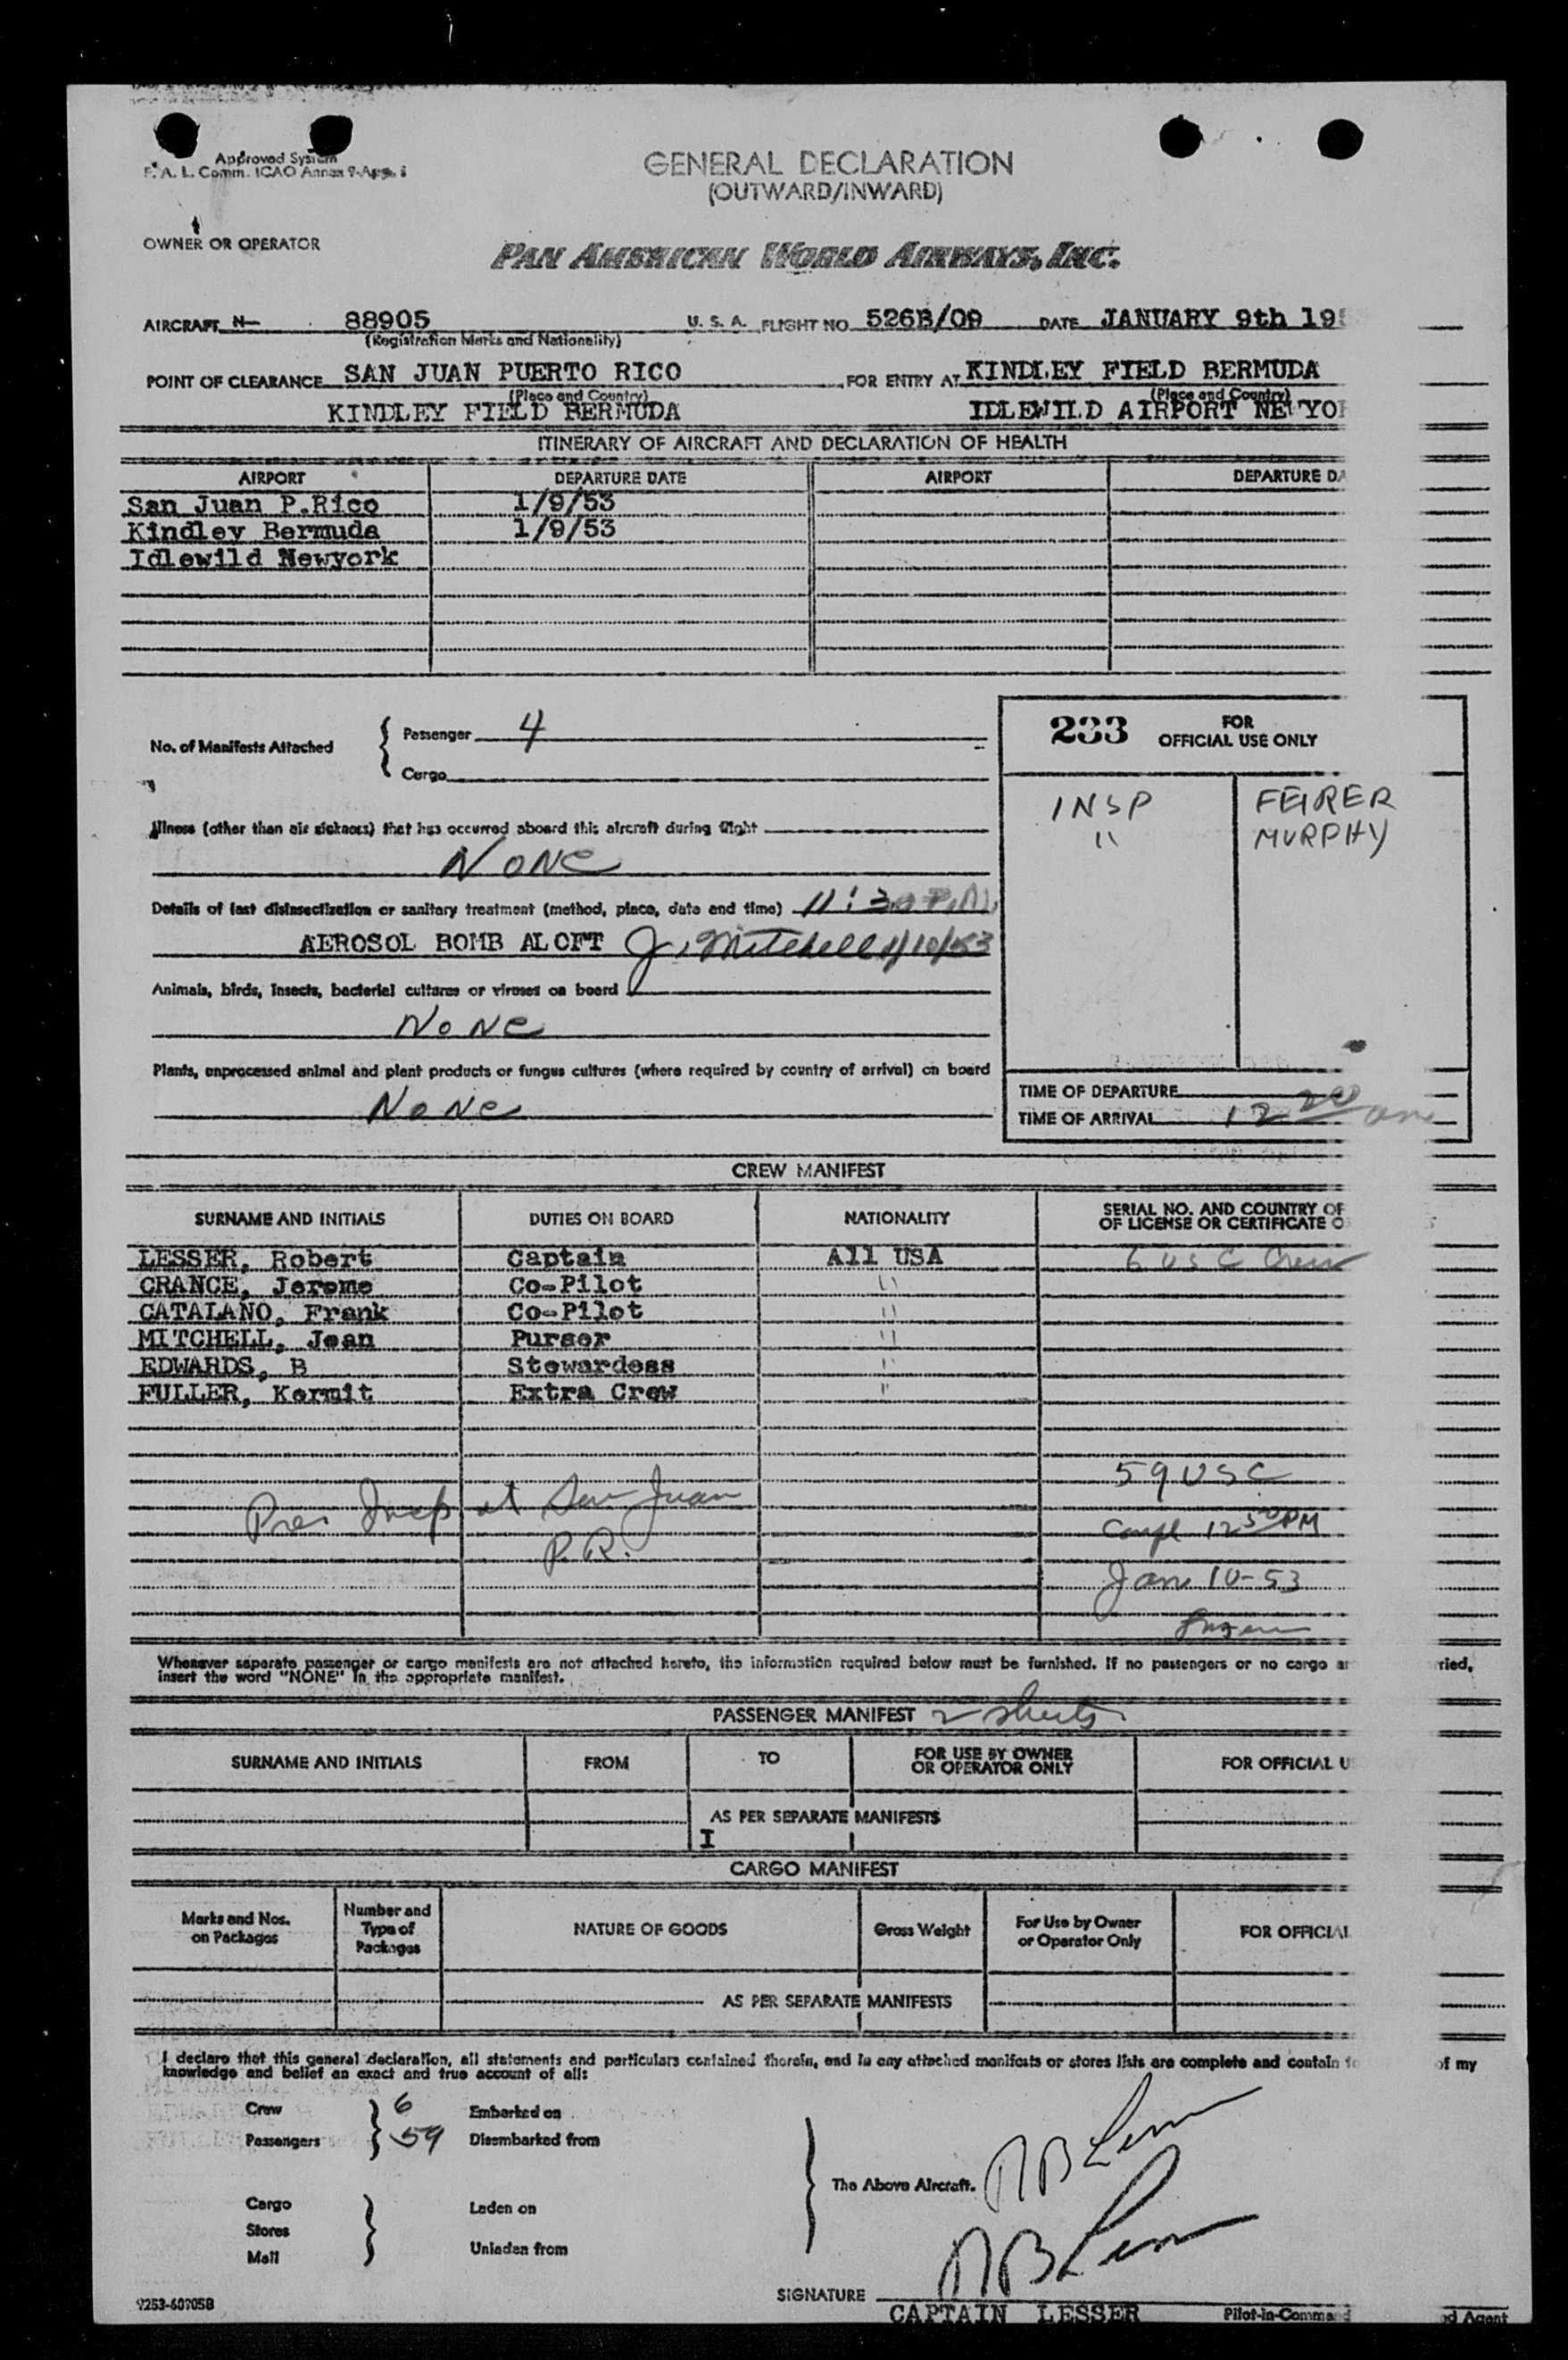 Approved System
F. A. L. Comm. ICAO Annex 9-App. 1
GENERAL DECLARATION
(OUTWARD/INWARD)
OWNER OR OPERATOR
PAN AMERICAN WORLD AIRWAYS, INC.
AIRCRAFT N- 88905 U. S. A. FLIGHT NO. 526B/09 DATE JANUARY 9th 19
(Registration Marks and Nationality)
POINT OF CLEARANCE SAN JUAN PUERTO RICO FOR ENTRY AT KINDLEY FIELD BERMUDA
(Place and Country) (Place and Country)
KINDLEY FIELD BERMUDA IDLEWILD AIRPORT NEW YO
ITINERARY OF AIRCRAFT AND DECLARATION OF HEALTH
AIRPORT DEPARTURE DATE AIRPORT DEPARTURE DA
San Juan P.Rico 1/9/53
Kindley Bermuda 1/9/53
Idlewild Newyork
No. of Manifests Attached { Passenger 4
Cargo
233 FOR OFFICIAL USE ONLY
INSP FEIRER
" MURPHY
Illness (other than air sickness) that has occurred aboard this aircraft during flight
NONE
Details of last disinsectization or sanitary treatment (method, place, date and time) 11:30 P.M.
AEROSOL BOMB ALOFT J. Mitchell 1/10/53
Animals, birds, insects, bacterial cultures or viruses on board
NONE
Plants, unprocessed animal and plant products or fungus cultures (where required by country of arrival) on board
NONE
TIME OF DEPARTURE
TIME OF ARRIVAL 12 20 am
CREW MANIFEST
SURNAME AND INITIALS DUTIES ON BOARD NATIONALITY SERIAL NO. AND COUNTRY OF
OF LICENSE OR CERTIFICATE O
LESSER, Robert Captain All USA 6 USC Crew
CRANCE, Jerome Co-Pilot "
CATALANO, Frank Co-Pilot "
MITCHELL, Jean Purser "
EDWARDS, B Stewardess "
FULLER, Kermit Extra Crew "
59 USC
Prei Insp at San Juan
P.R.
Compl 12 50 PM
Jan 10-53
Whenever separate passenger or cargo manifests are not attached hereto, the information required below must be furnished. If no passengers or no cargo ar ried,
insert the word "NONE" in the appropriate manifest.
PASSENGER MANIFEST 2 sheets
SURNAME AND INITIALS FROM TO FOR USE BY OWNER OR OPERATOR ONLY FOR OFFICIAL U
AS PER SEPARATE MANIFESTS
I
CARGO MANIFEST
Marks and Nos. on Packages Number and Type of Packages NATURE OF GOODS Gross Weight For Use by Owner or Operator Only FOR OFFICIAL
AS PER SEPARATE MANIFESTS
I declare that this general declaration, all statements and particulars contained therein, and in any attached manifests or stores lists are complete and contain to of my
knowledge and belief an exact and true account of all:
Crew 6 Embarked on
Passengers 59 Disembarked from
The Above Aircraft. RB Lesser
Cargo Laden on
Stores
Mail Unladen from
SIGNATURE RB Lesser
CAPTAIN LESSER Pilot-in-Command d Agent
9253-60705B